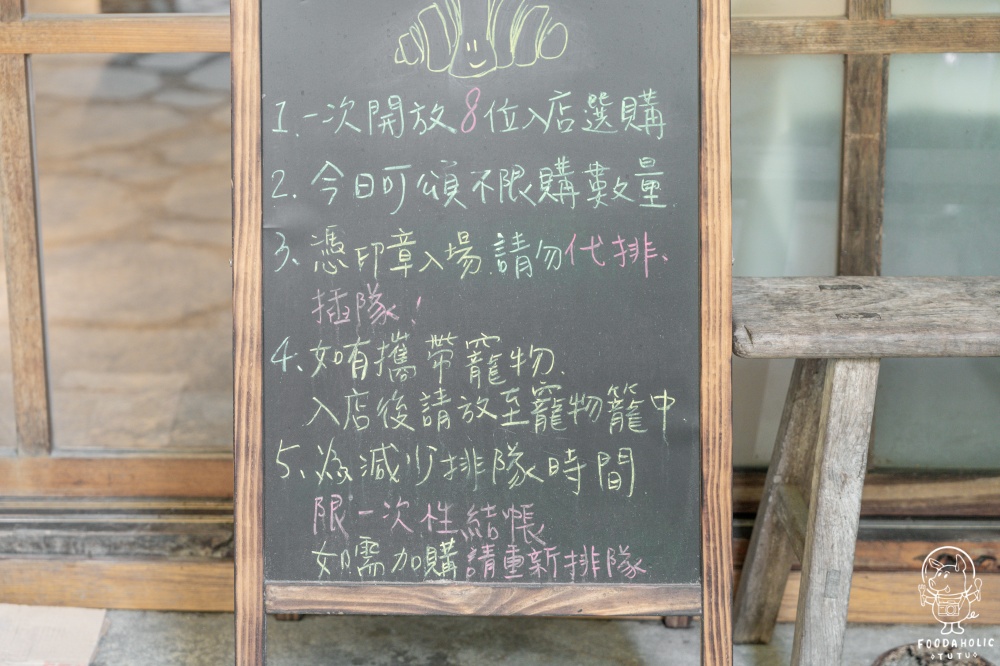 1. 一次開放8位入店選購
2. 今日可頌不限購數量
3、憑印章入場.請勿代排、
插隊!
4、如有攜帶寵物、
入店後請放至寵物籠中.
5、為減少排隊時間
限一次性結帳
如需加購請重新排隊
FOODAHOLIC
TUTU